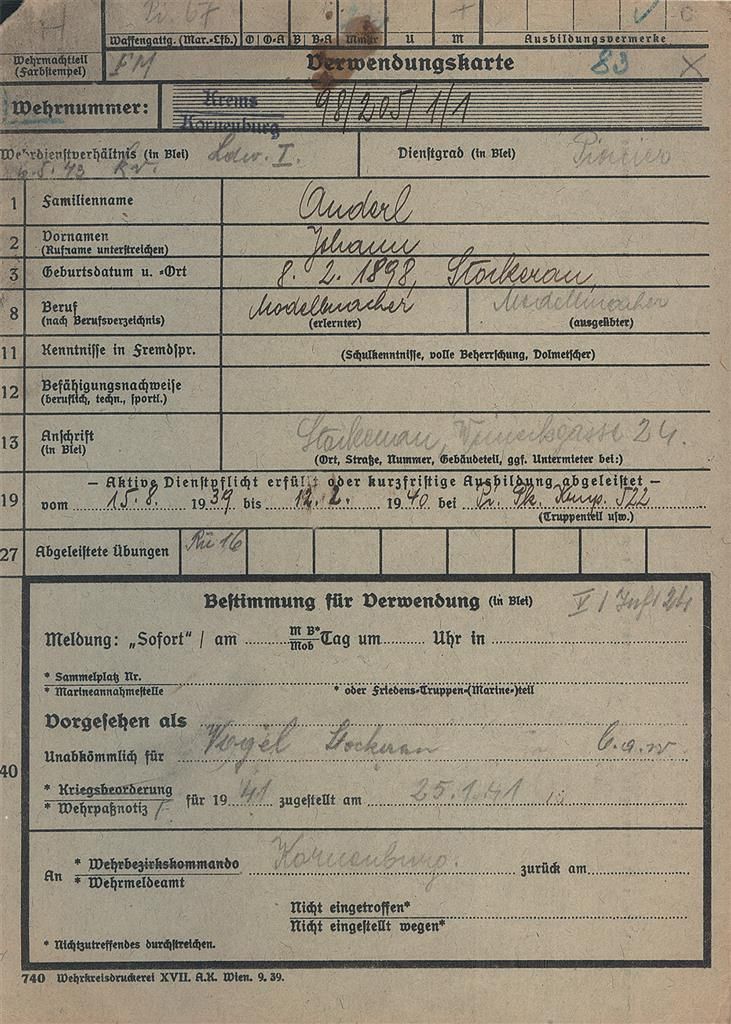 H Pi. 67
Waffengattg. (Mar.-Lfb.) O O-A B B-A U M Ausbildungsvermerke
Wehrmachtteil
(Farbstempel)
Verwendungskarte 83
Wehrnummer: Krems 98/205/1/1
Korneuburg
Wehrdienstverhältnis (in Blei) Ldw. I. Dienstgrad (in Blei) Pionier
6.8.43 kv.
1 Familienname Anderl
2 Vornamen Johann
(Rufname unterstreichen)
3 Geburtsdatum u. -Ort 8. 2. 1898, Stockerau
8 Beruf Modellmacher Modellmacher
(nach Berufsverzeichnis) (erlernter) (ausgeübter)
11 Kenntnisse in Fremdspr. (Schulkenntnisse, volle Beherrschung, Dolmetscher)
12 Befähigungsnachweise
(beruflich, techn., sportl.)
13 Anschrift Stockerau, 24.
(in Blei) (Ort, Straße, Nummer, Gebäudeteil, ggf. Untermieter bei:)
— Aktive Dienstpflicht erfüllt oder kurzfristige Ausbildung abgeleistet —
19 vom 15.8. 1939 bis 12.2. 1940 bei Komp. 522
(Truppenteil usw.)
27 Abgeleistete Übungen Rü 16
Bestimmung für Verwendung (in Blei)
Meldung: „Sofort" / am M B* Tag um Uhr in
Mob
* Sammelplatz Nr.
* Marineannahmestelle * oder Friedens-Truppen-(Marine-)teil
Vorgesehen als
Unabkömmlich für Vogel Stockerau b.a.w
40
* Kriegsbeorderung
* Wehrpaßnotiz für 1941 zugestellt am 25.1.41
An * Wehrbezirkskommando Korneuburg. zurück am
* Wehrmeldeamt
Nicht eingetroffen*
Nicht eingestellt wegen*
* Nichtzutreffendes durchstreichen.
740 Wehrkreisdruckerei XVII. A.K. Wien. 9. 39.